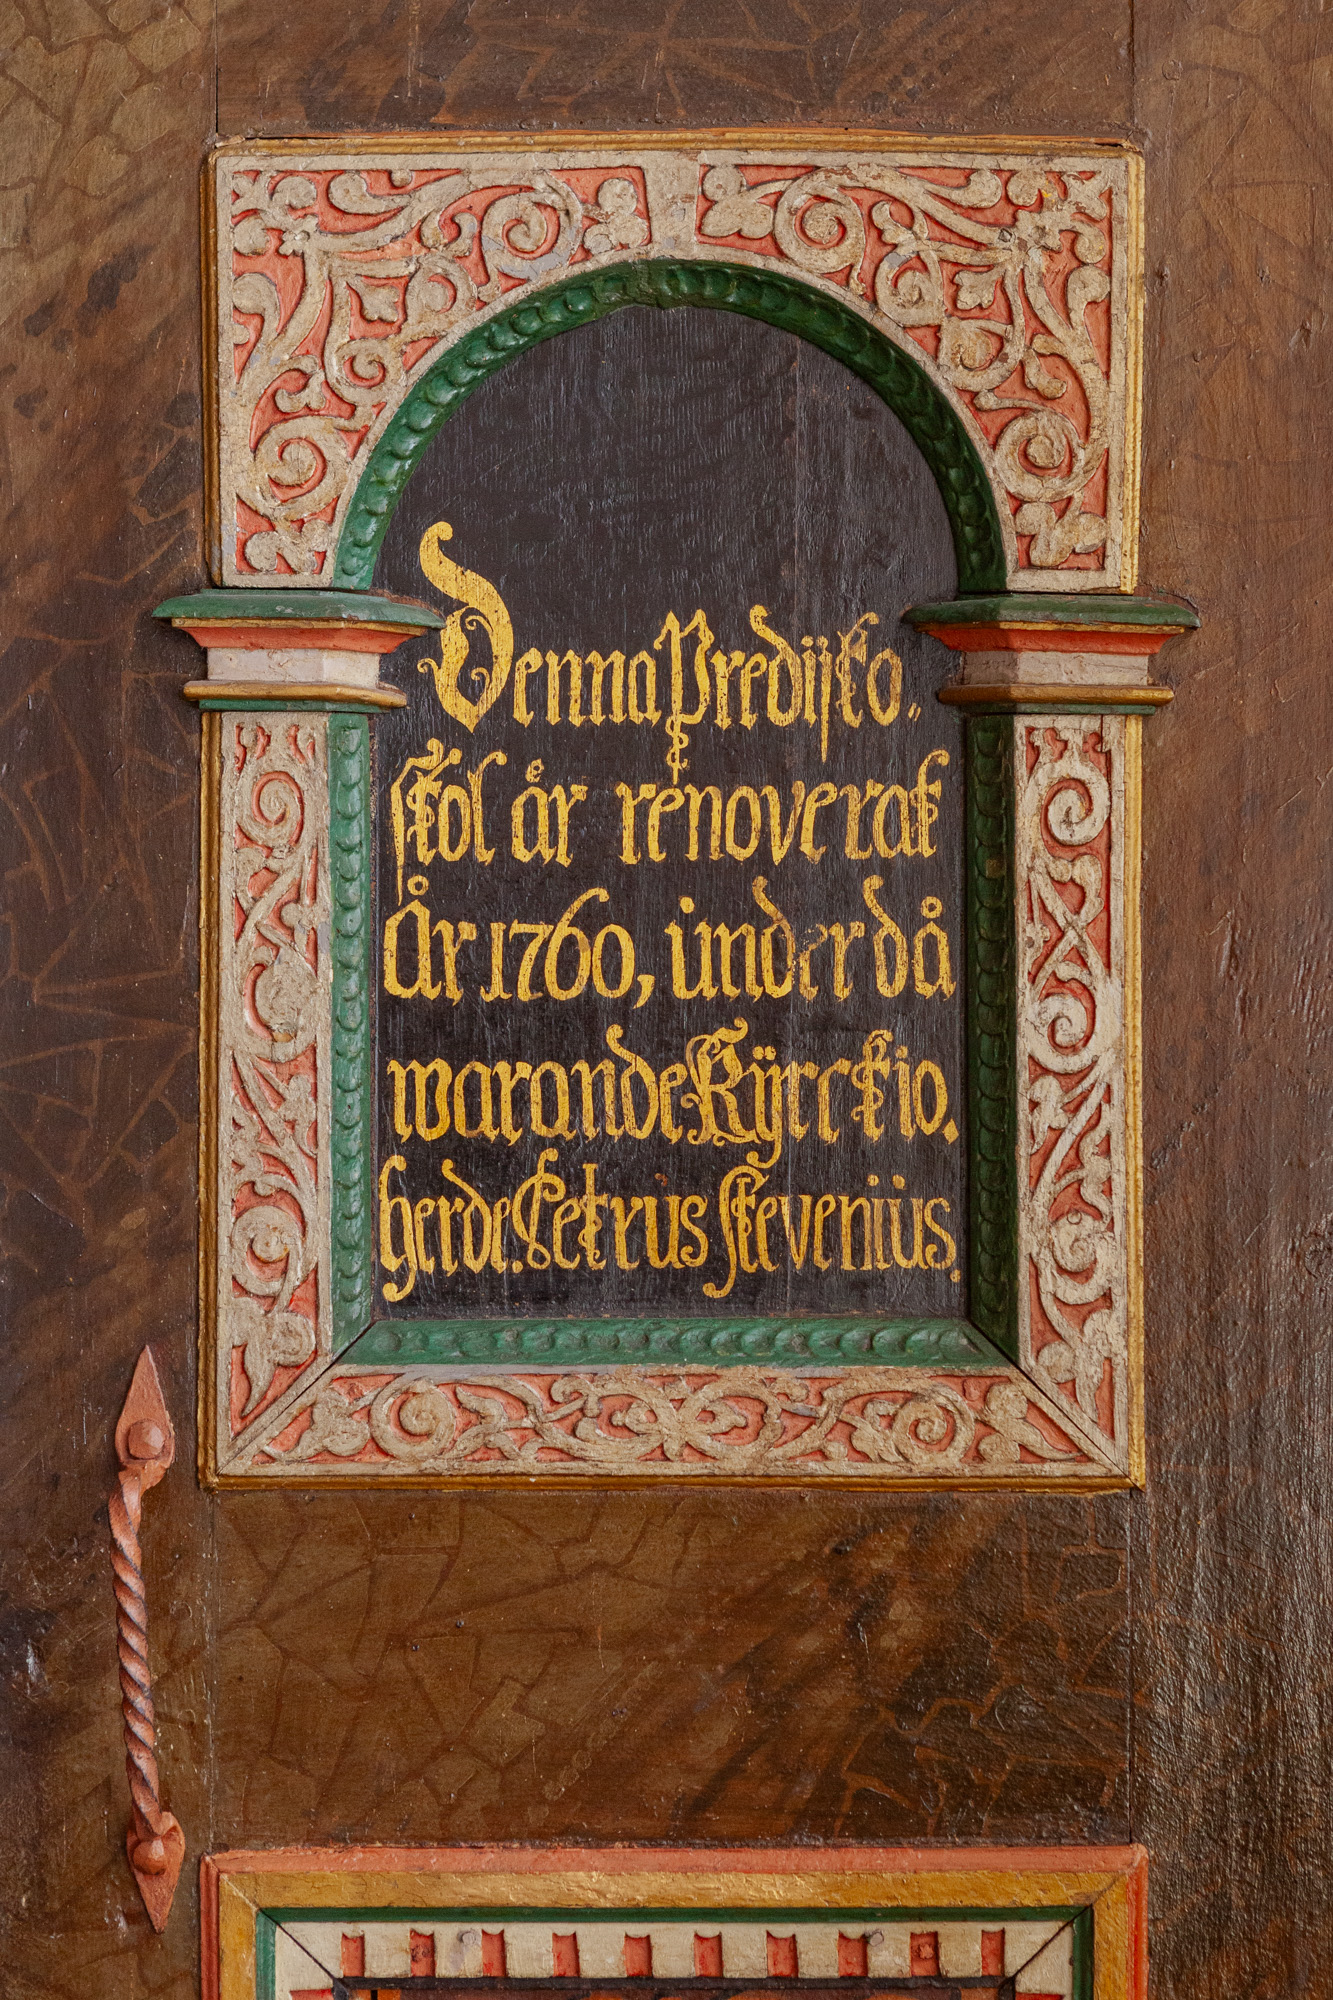 Denna Predijko„
stol är renoverat
År 1760, under då
warande Kyrckio.
herde. Petrus Stevenius.